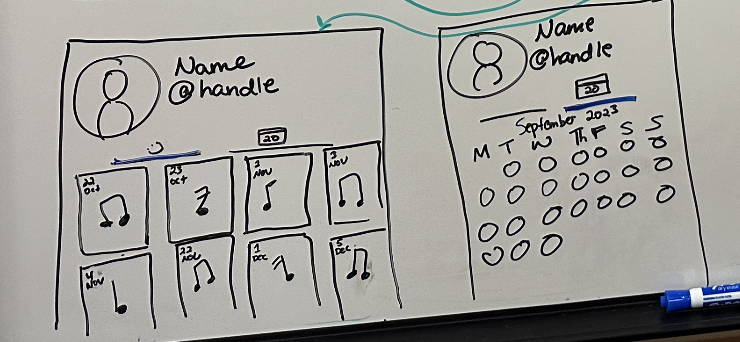 Name
@handle
20
22
Oct
23
Oct
2
Nov
3
Nov
4
Nov
22
Nov
1
Dec
5
Dec
Name
@handle
20
September 2023
M T W Th F S S